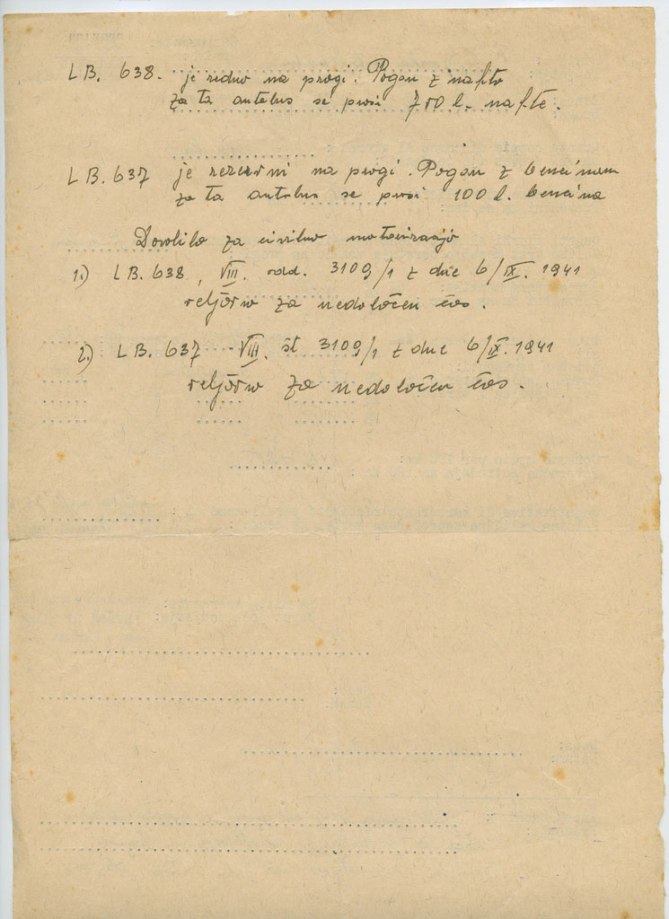 LB. 638. je redno na progi. Pogon z nafto
za ta autobus se prosi 700 l. nafte.
LB. 637 je rezervni na progi. Pogon z bencinom
za ta autobus se prosi 100 l. bencina
Dovolilo za civilno motorizacijo
1.) LB. 638, VIII. odd. 3109/1 z dne 6/IX. 1941
veljavno za nedoločen čas.
2.) LB. 637 VIII. št 3109/1 z dne 6/IX. 1941
veljavno za nedoločen čas.